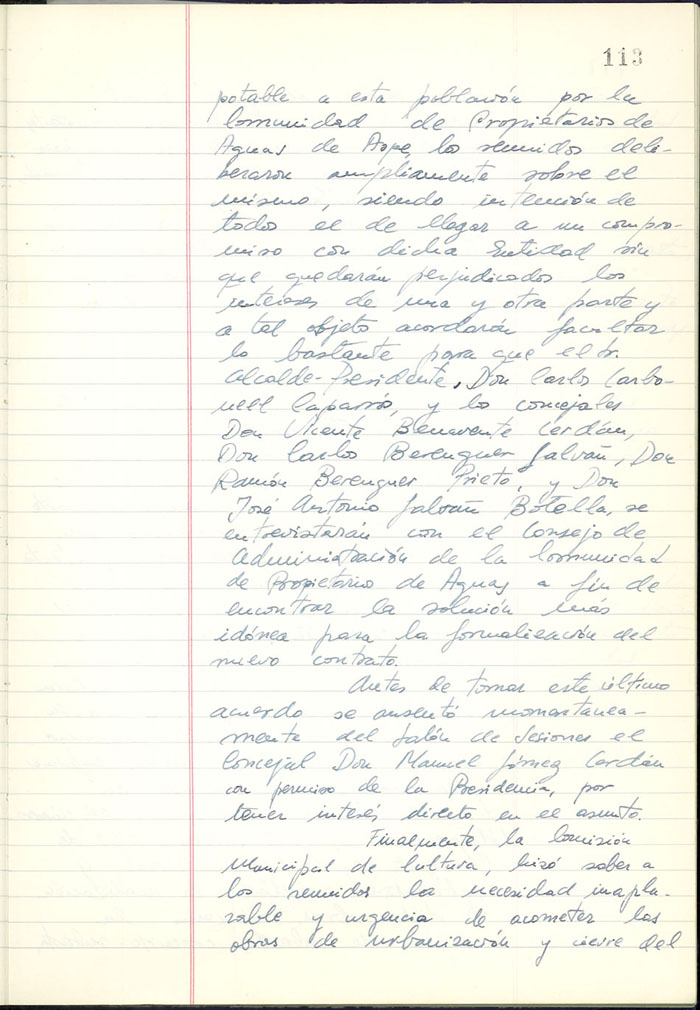 113
potable a esta población por la
Comunidad de Propietarios de
Aguas de Aspe, los reunidos deli-
beraron ampliamente sobre el
mismo, siendo intención de
todos el de llegar a un compro-
miso con dicha Entidad sin
que quedarán perjudicados los
intereses de una y otra parte y
a tal objeto acordarón facultar
lo bastante para que el Sr.
Alcalde-Presidente, Don Carlos Carbo-
nell Caparrós, y los concejales
Don Vicente Benavente Cerdán,
Don Carlos Berenguer Galvañ, Don
Ramón Berenguer Prieto, y Don
José Antonio Galvañ Botella, se
entrevistarán con el Consejo de
Administración de la Comunidad
de Propietario de Aguas a fin de
encontrar la solución más
idónea para la formalización del
nuevo contrato.
Antes de tomar este último
acuerdo se ausentó momentanea-
mente del Salón de Sesiones el
Concejal Don Manuel Gómez Cerdán
con permiso de la Presidencia, por
tener interés directo en el asunto.
Finalmente, la Comisión
Municipal de Cultura, hizó saber a
los reunidos la necesidad inapla-
zable y urgencia de acometer las
obras de urbanización y cierre del